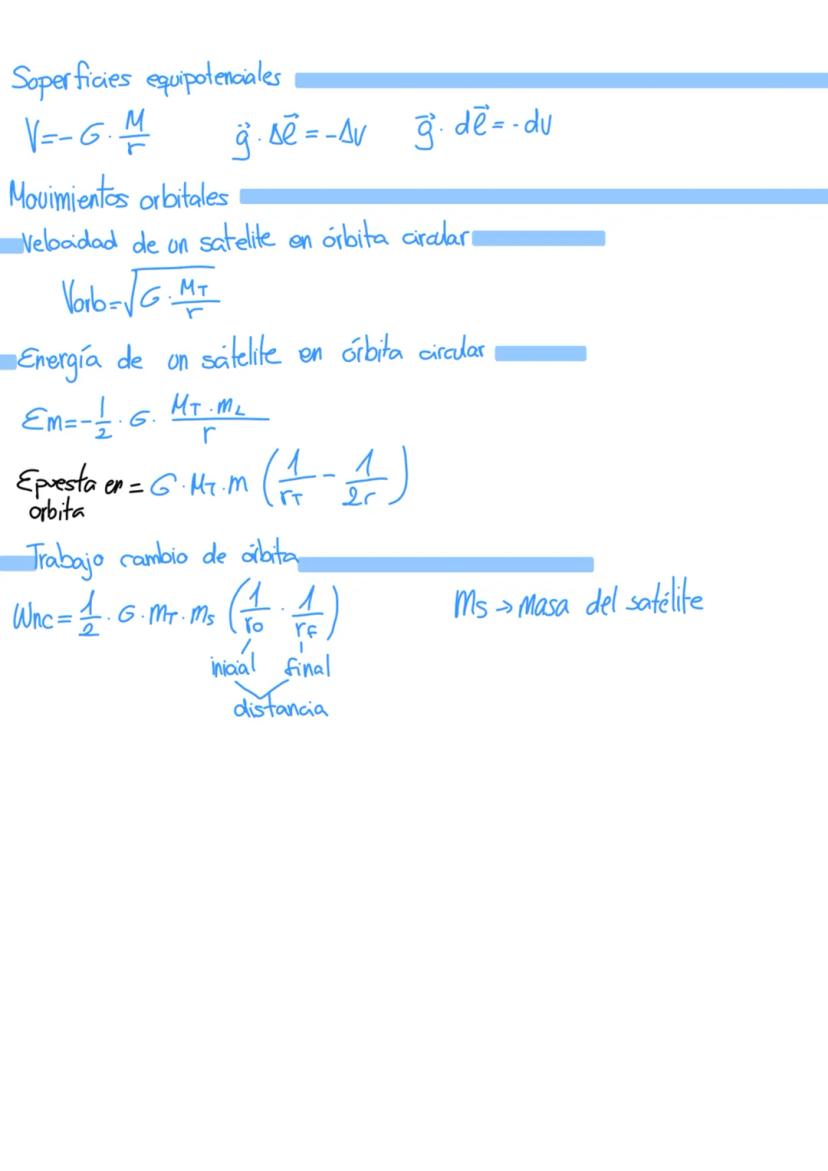 Superficies equipotenciales
V=-G·M/r    g⃗·Δl⃗=-ΔV    g⃗·dl⃗=-dv
Movimientos orbitales
Velocidad de un satelite en órbita circular
Vorb=√(G·M_T/r)
Energía de un sátelite en órbita circular
Em=-1/2·G·M_T·m_L/r
Epuesta en orbita = G·M_T·m(1/r_T - 1/2r)
Trabajo cambio de órbita
Wnc=1/2·G·m_T·m_s(1/r_0·1/r_F)    Ms→masa del satélite
inicial final
distancia